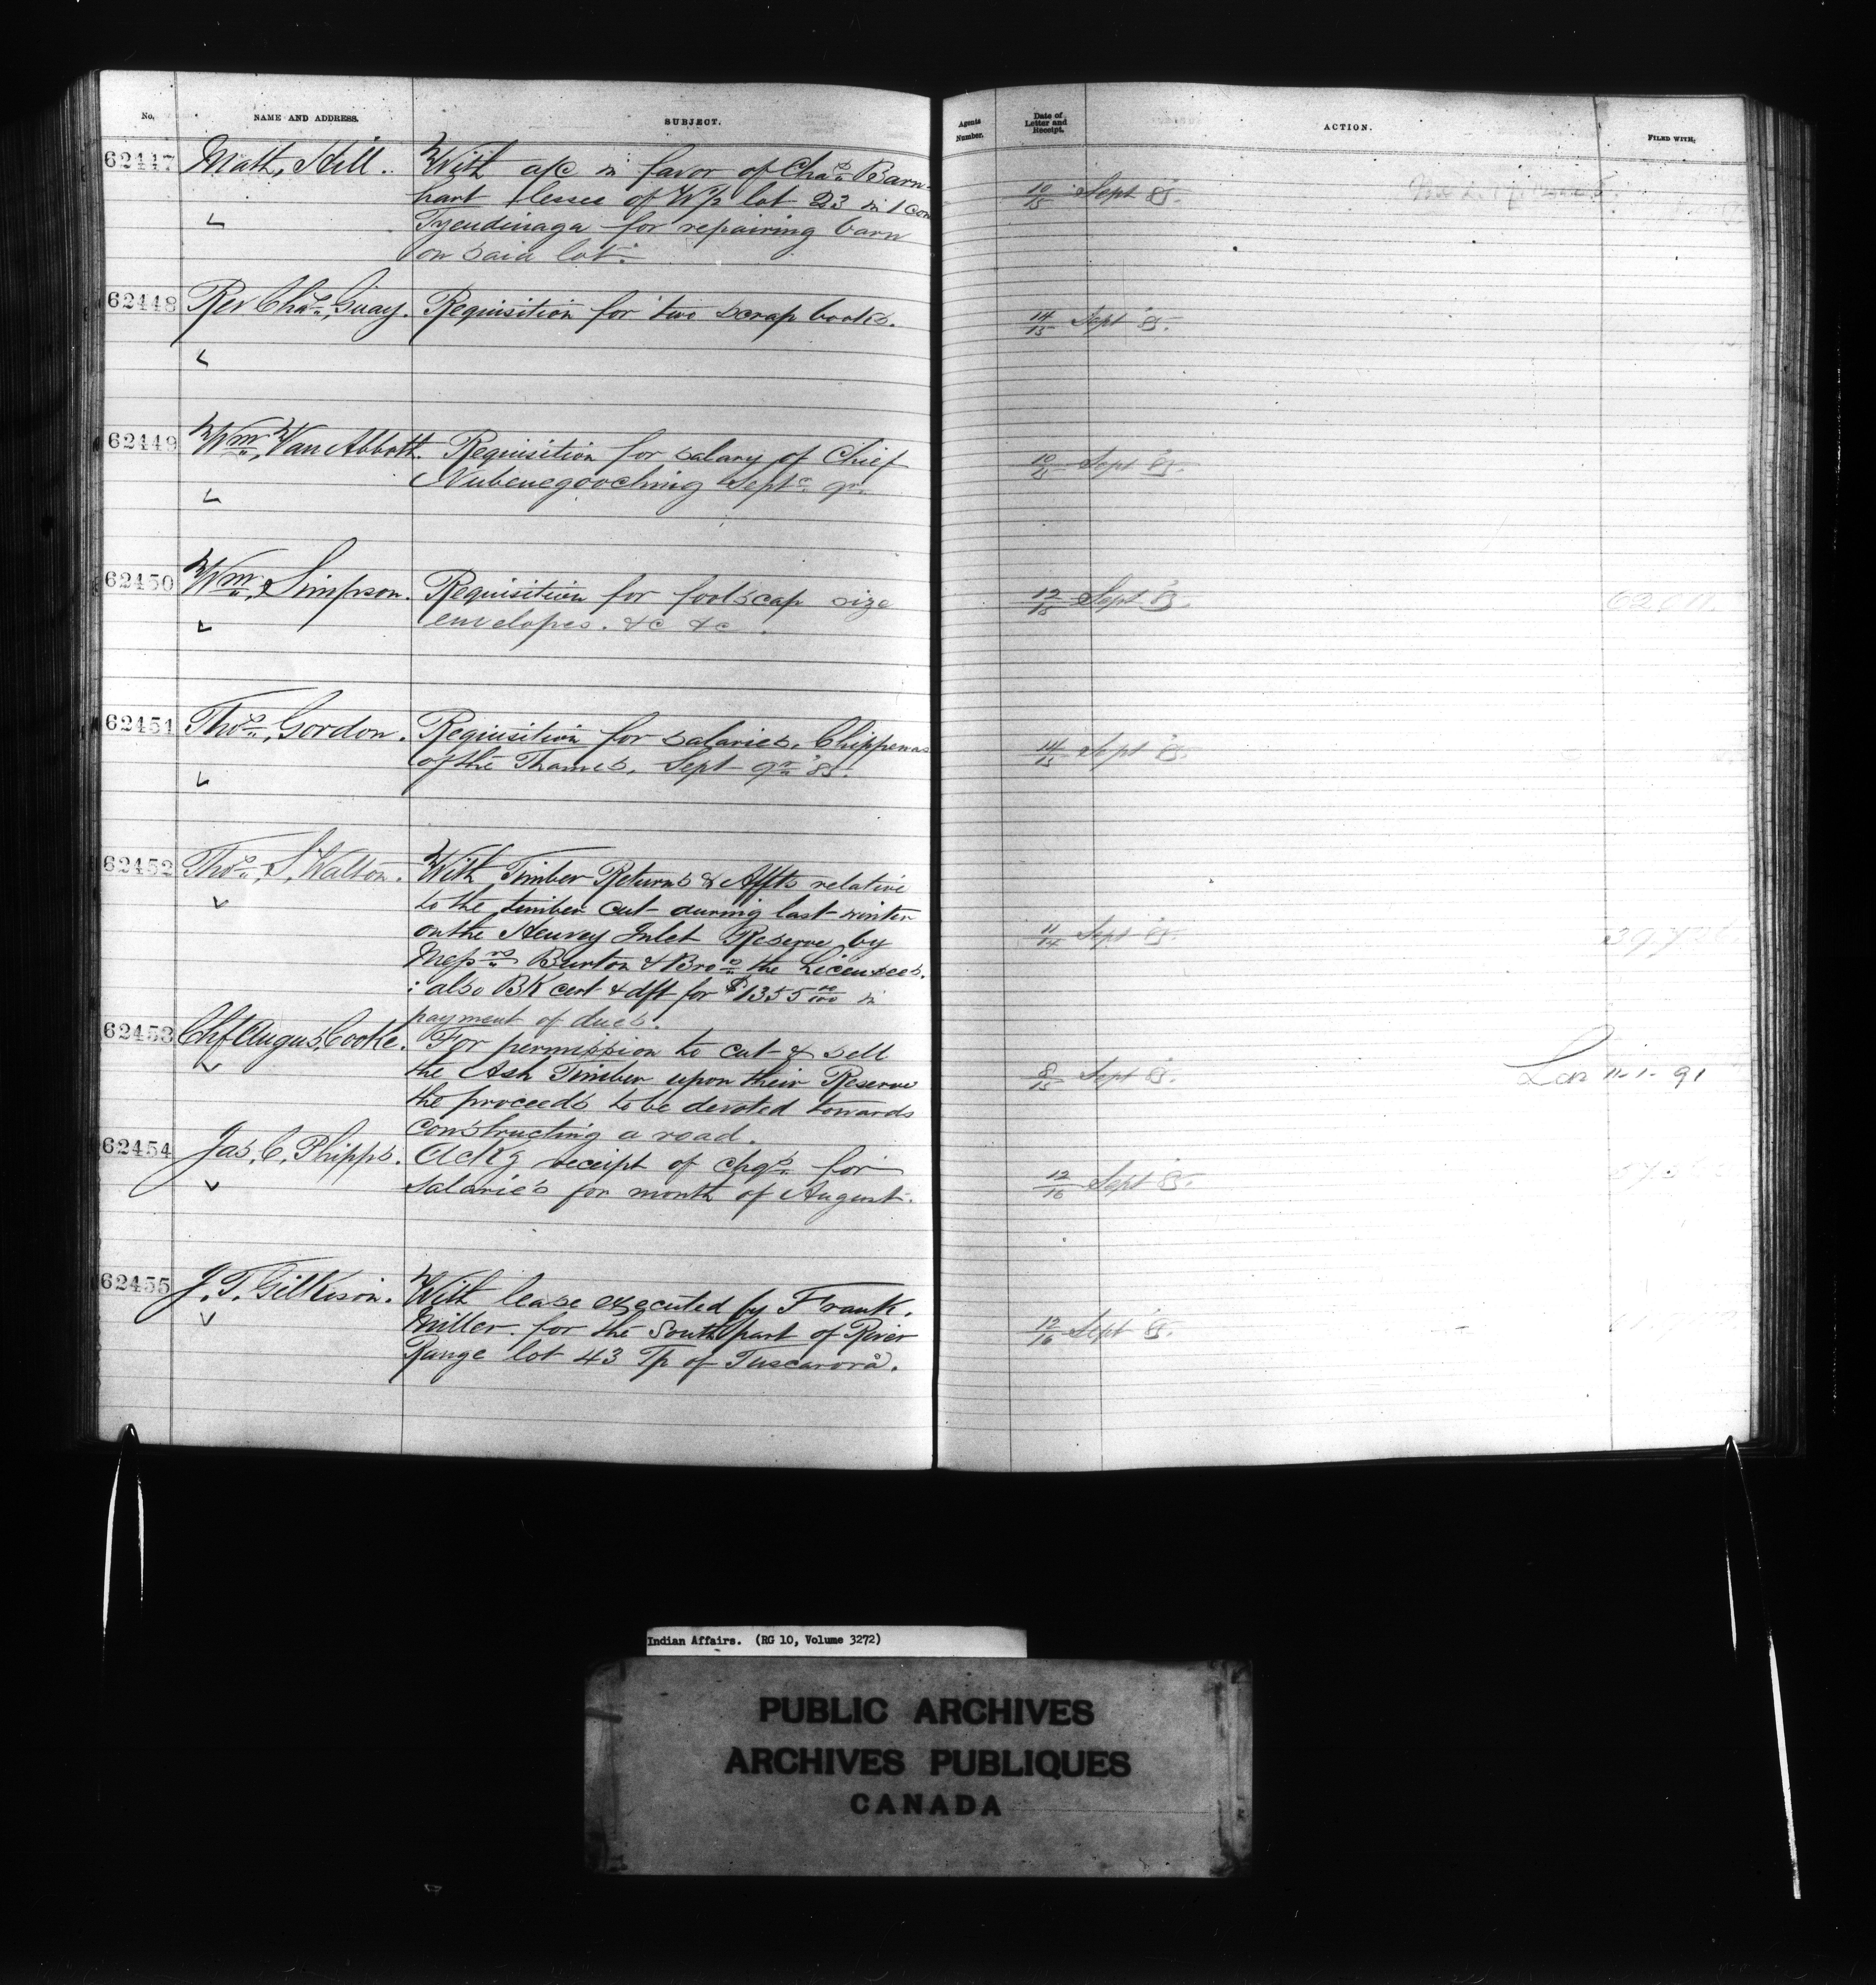 No. NAME AND ADDRESS. SUBJECT.
62447 Math, Hill. With a/c in favor of Chas Barn-
hart lessee of W½ lot 23 in 1 con
Tyendinaga for repairing barn
on said lot.
62448 Rev Chas, Guay. Requisition for two scrap books.
62449 Wm, Van Abbott. Requisition for salary of Chief
Nubenegooching Septr qr.
62450 Wm, Simpson. Requisition for foolscap size
envelopes. &c &c.
62451 Thos, Gordon. Requisition for salaries, Chippewas
of the Thames, Sept qr '85.
62452 Thos, S, Walton. With Timber Returns & Affts relative
to the timber cut during last winter
on the Henvey Inlet Reserve by
Messrs Burton & Bros the Licensees.
; also BK cert & dft for $1355 00/100 in
payment of dues.
62453 Chf Angus, Cooke. For permission to cut & sell
the Ash Timber upon their Reserve
the proceeds to be devoted towards
constructing a road.
62454 Jas, C, Phipps. Ackg receipt of chqs for
Salaries for month of August.
62455 J. T. Gilkison. With lease executed by Frank.
Miller. for the South part of River
Range lot 43 Tp of Tuscarora.
Agents Number. Date of Letter and Receipt. ACTION. FILED WITH,
10/15 Sept '85.
14/15 Sept '85.
10/15 Sept '85.
12/15 Sept '85.
14/15 Sept '85.
11/14 Sept '85.
8/15 Sept '85. 11-1-91
12/16 Sept '85.
12/16 Sept '85.
Indian Affairs. (RG 10, Volume 3272)
PUBLIC ARCHIVES
ARCHIVES PUBLIQUES
CANADA